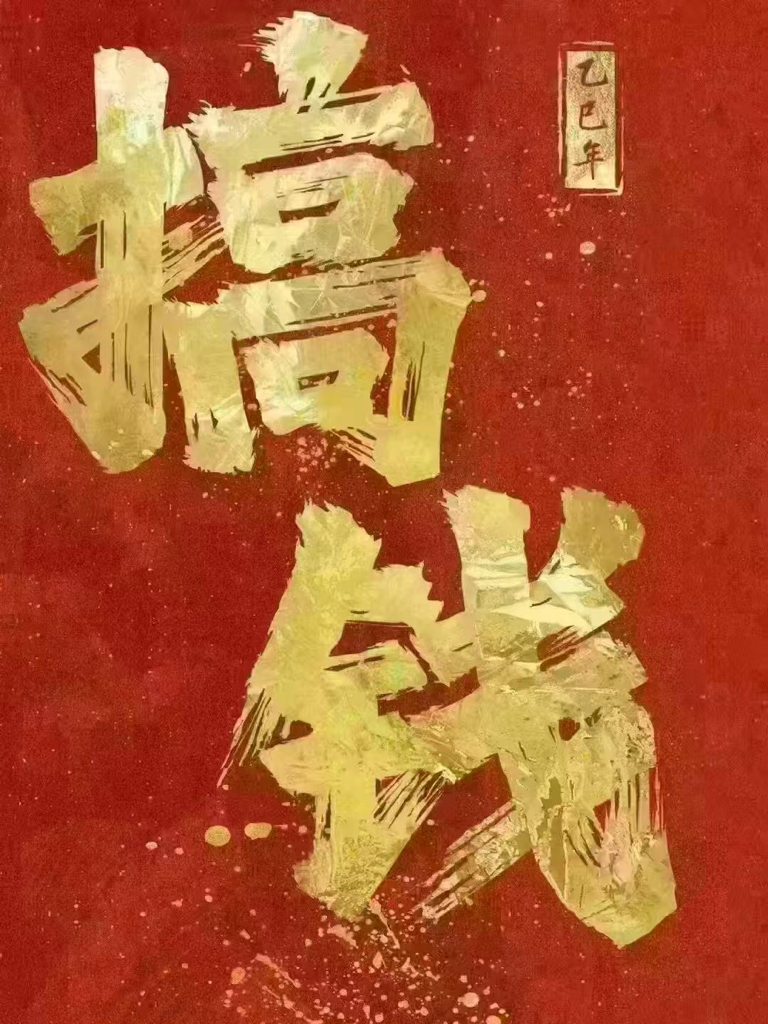 搞钱
乙巳年